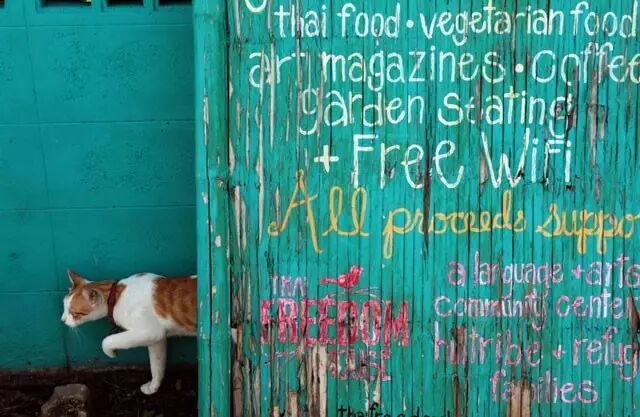 thai food • vegetarian food
art magazines • coffee
garden seating
+ Free WiFi
All proceeds suppo
THAI
FREEDOM
HOUSE
a language + arts
community center
hilltribe + refug
families